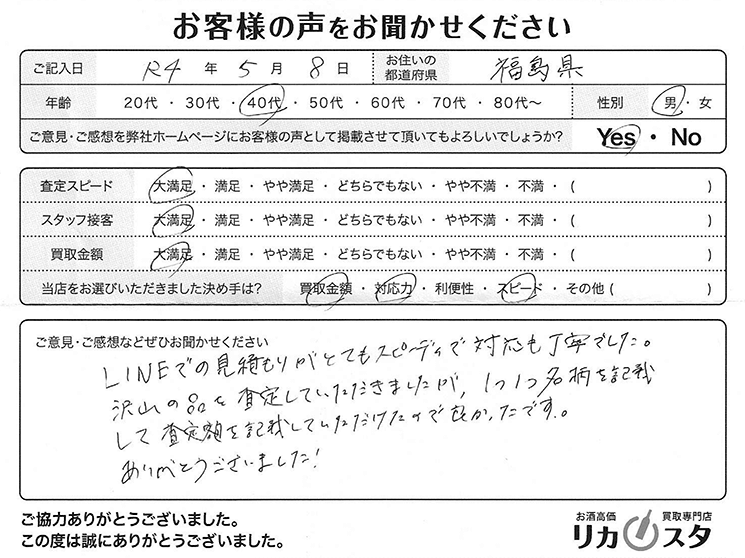 お客様の声をお聞かせください
ご記入日 R4 年 5 月 8 日 お住いの都道府県 福島県
年齢 20代 ・ 30代 ・ 40代 ・ 50代 ・ 60代 ・ 70代 ・ 80代〜 性別 男 ・ 女
ご意見・ご感想を弊社ホームページにお客様の声として掲載させて頂いてもよろしいでしょうか? Yes ・ No
査定スピード 大満足 ・ 満足 ・ やや満足 ・ どちらでもない ・ やや不満 ・ 不満 ・ ( )
スタッフ接客 大満足 ・ 満足 ・ やや満足 ・ どちらでもない ・ やや不満 ・ 不満 ・ ( )
買取金額 大満足 ・ 満足 ・ やや満足 ・ どちらでもない ・ やや不満 ・ 不満 ・ ( )
当店をお選びいただきました決め手は? 買取金額 ・ 対応力 ・ 利便性 ・ スピード ・ その他 ( )
ご意見・ご感想などぜひお聞かせください
LINEでの見積もりがとてもスピーディで対応も丁寧でした。
沢山の品を査定していただきましたが、1つ1つ名柄を記載
して査定額を記載していただけたので良かったです。
ありがとうございました!
ご協力ありがとうございました。
この度は誠にありがとうございました。
お酒高価 買取専門店
リカスタ